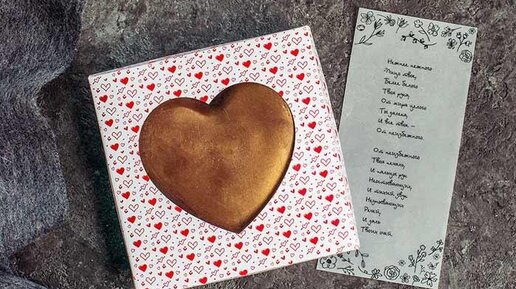 Нежнее нежного
Лицо твоё,
Белее белого
Твоя рука,
От мира целого
Ты далека,
И всё твое —
От неизбежного.
От неизбежного
Твоя печаль,
И пальцы рук
Неостывающих,
И тихий звук
Неунывающих
Речей,
И даль
Твоих очей.